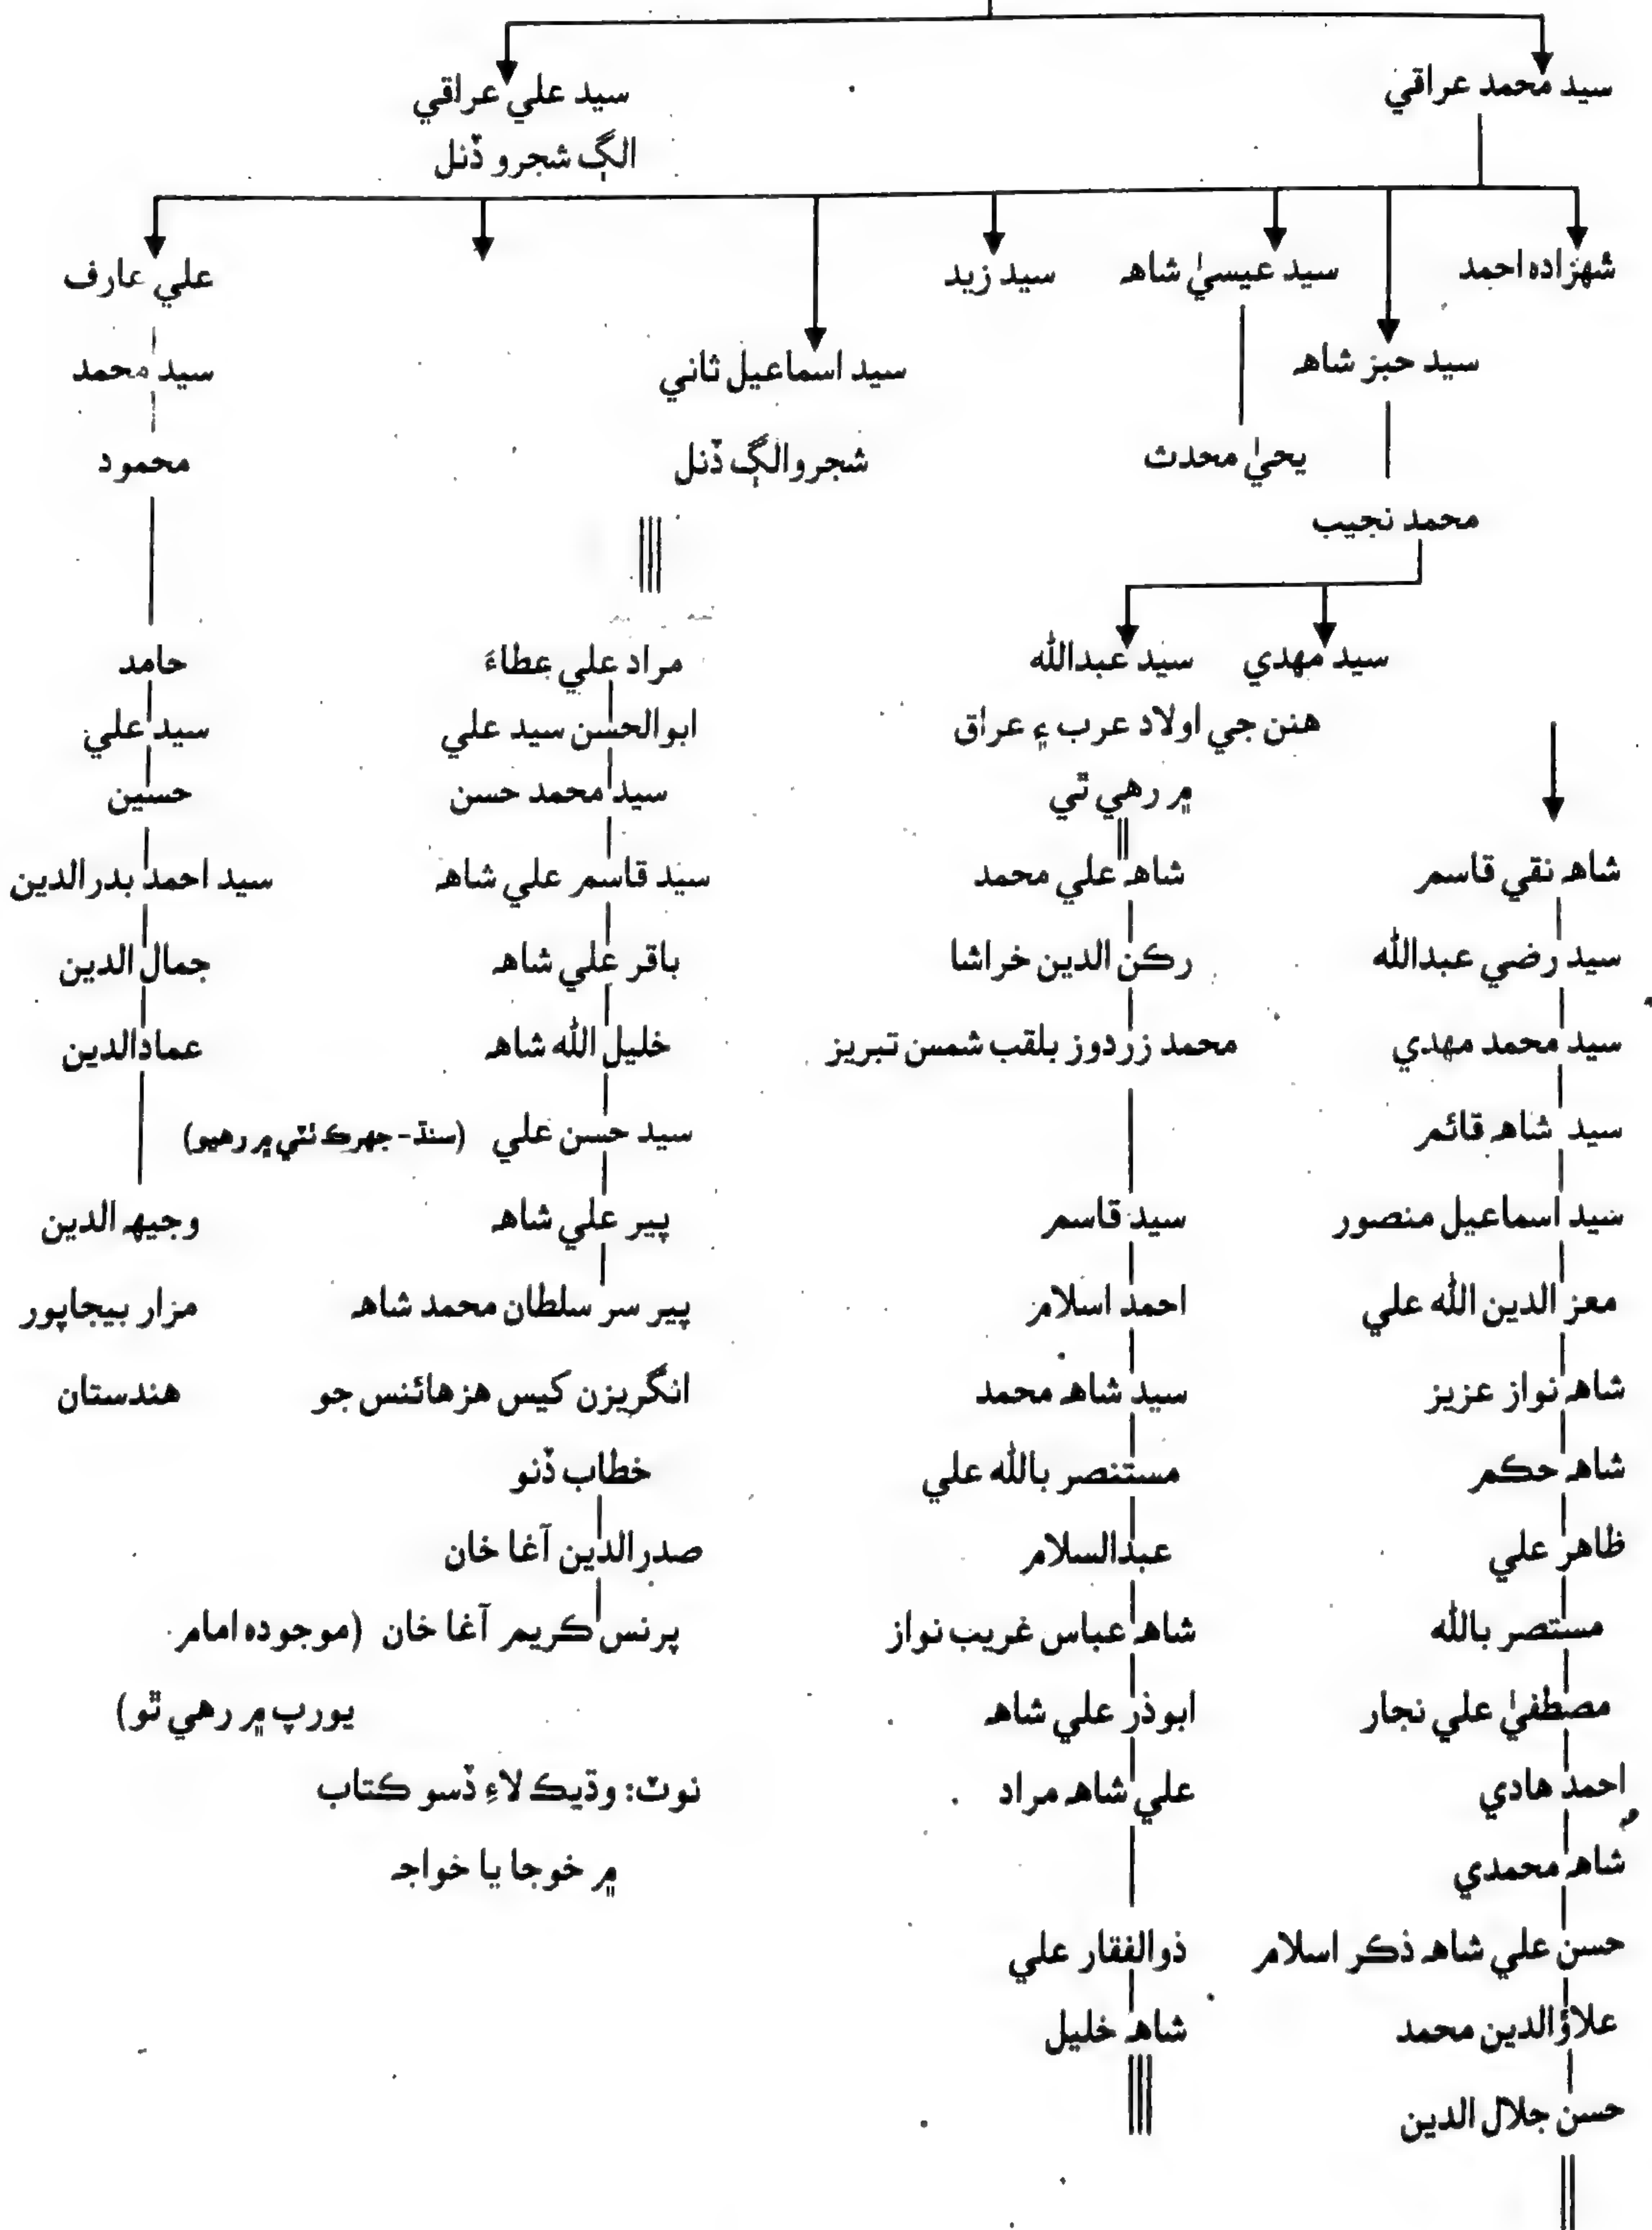 سيد محمد عراقي
سيد علي عراقي
الڳ شجرو ڏنل
شهزاده احمد
سيد عيسيٰ شاهه
سيد زيد
علي عارف
سيد حبز شاهه
سيد اسماعيل ثاني
سيد محمد
يحيٰ محدث
شجرو الڳ ڏنل
محمود
محمد نجيب
سيد مهدي
سيد عبدالله
هنن جي اولاد عرب ۽ عراق
۾ رهي ٿي
شاهه نقي قاسم
سيد رضي عبدالله
سيد محمد مهدي
سيد شاهه قائم
سيد اسماعيل منصور
معز الدين الله علي
شاهه نواز عزيز
شاهه حڪم
ظاهر علي
مستصر بالله
مصطفيٰ علي نجار
احمد هادي
شاهه محمدي
حسن علي شاهه ذڪر اسلام
علاؤالدين محمد
حسن جلال الدين
شاهه علي محمد
رڪن الدين خراشا
محمد زردوز بلقب شمس تبريز
سيد قاسم
احمد اسلام
سيد شاهه محمد
مستنصر بالله علي
عبدالسلام
شاهه عباس غريب نواز
ابوذر علي شاهه
علي شاهه مراد
ذوالفقار علي
شاهه خليل
مراد علي عطاءَ
ابوالحسن سيد علي
سيد محمد حسن
سيد قاسم علي شاهه
باقر علي شاهه
خليل الله شاهه
سيد حسن علي (سنڌ - جهرڪ ٺٽي ۾ رهيو)
پير علي شاهه
پير سر سلطان محمد شاهه
انگريزن کيس هزهائنس جو
خطاب ڏنو
صدرالدين آغا خان
پرنس ڪريم آغا خان (موجوده امام
يورپ ۾ رهي ٿو)
نوٽ: وڌيڪ لاءِ ڏسو ڪتاب
۾ خوجا يا خواجه
حامد
سيد علي
حسين
سيد احمد بدرالدين
جمال الدين
عمادالدين
وجيهه الدين
مزار بيجاپور
هندستان